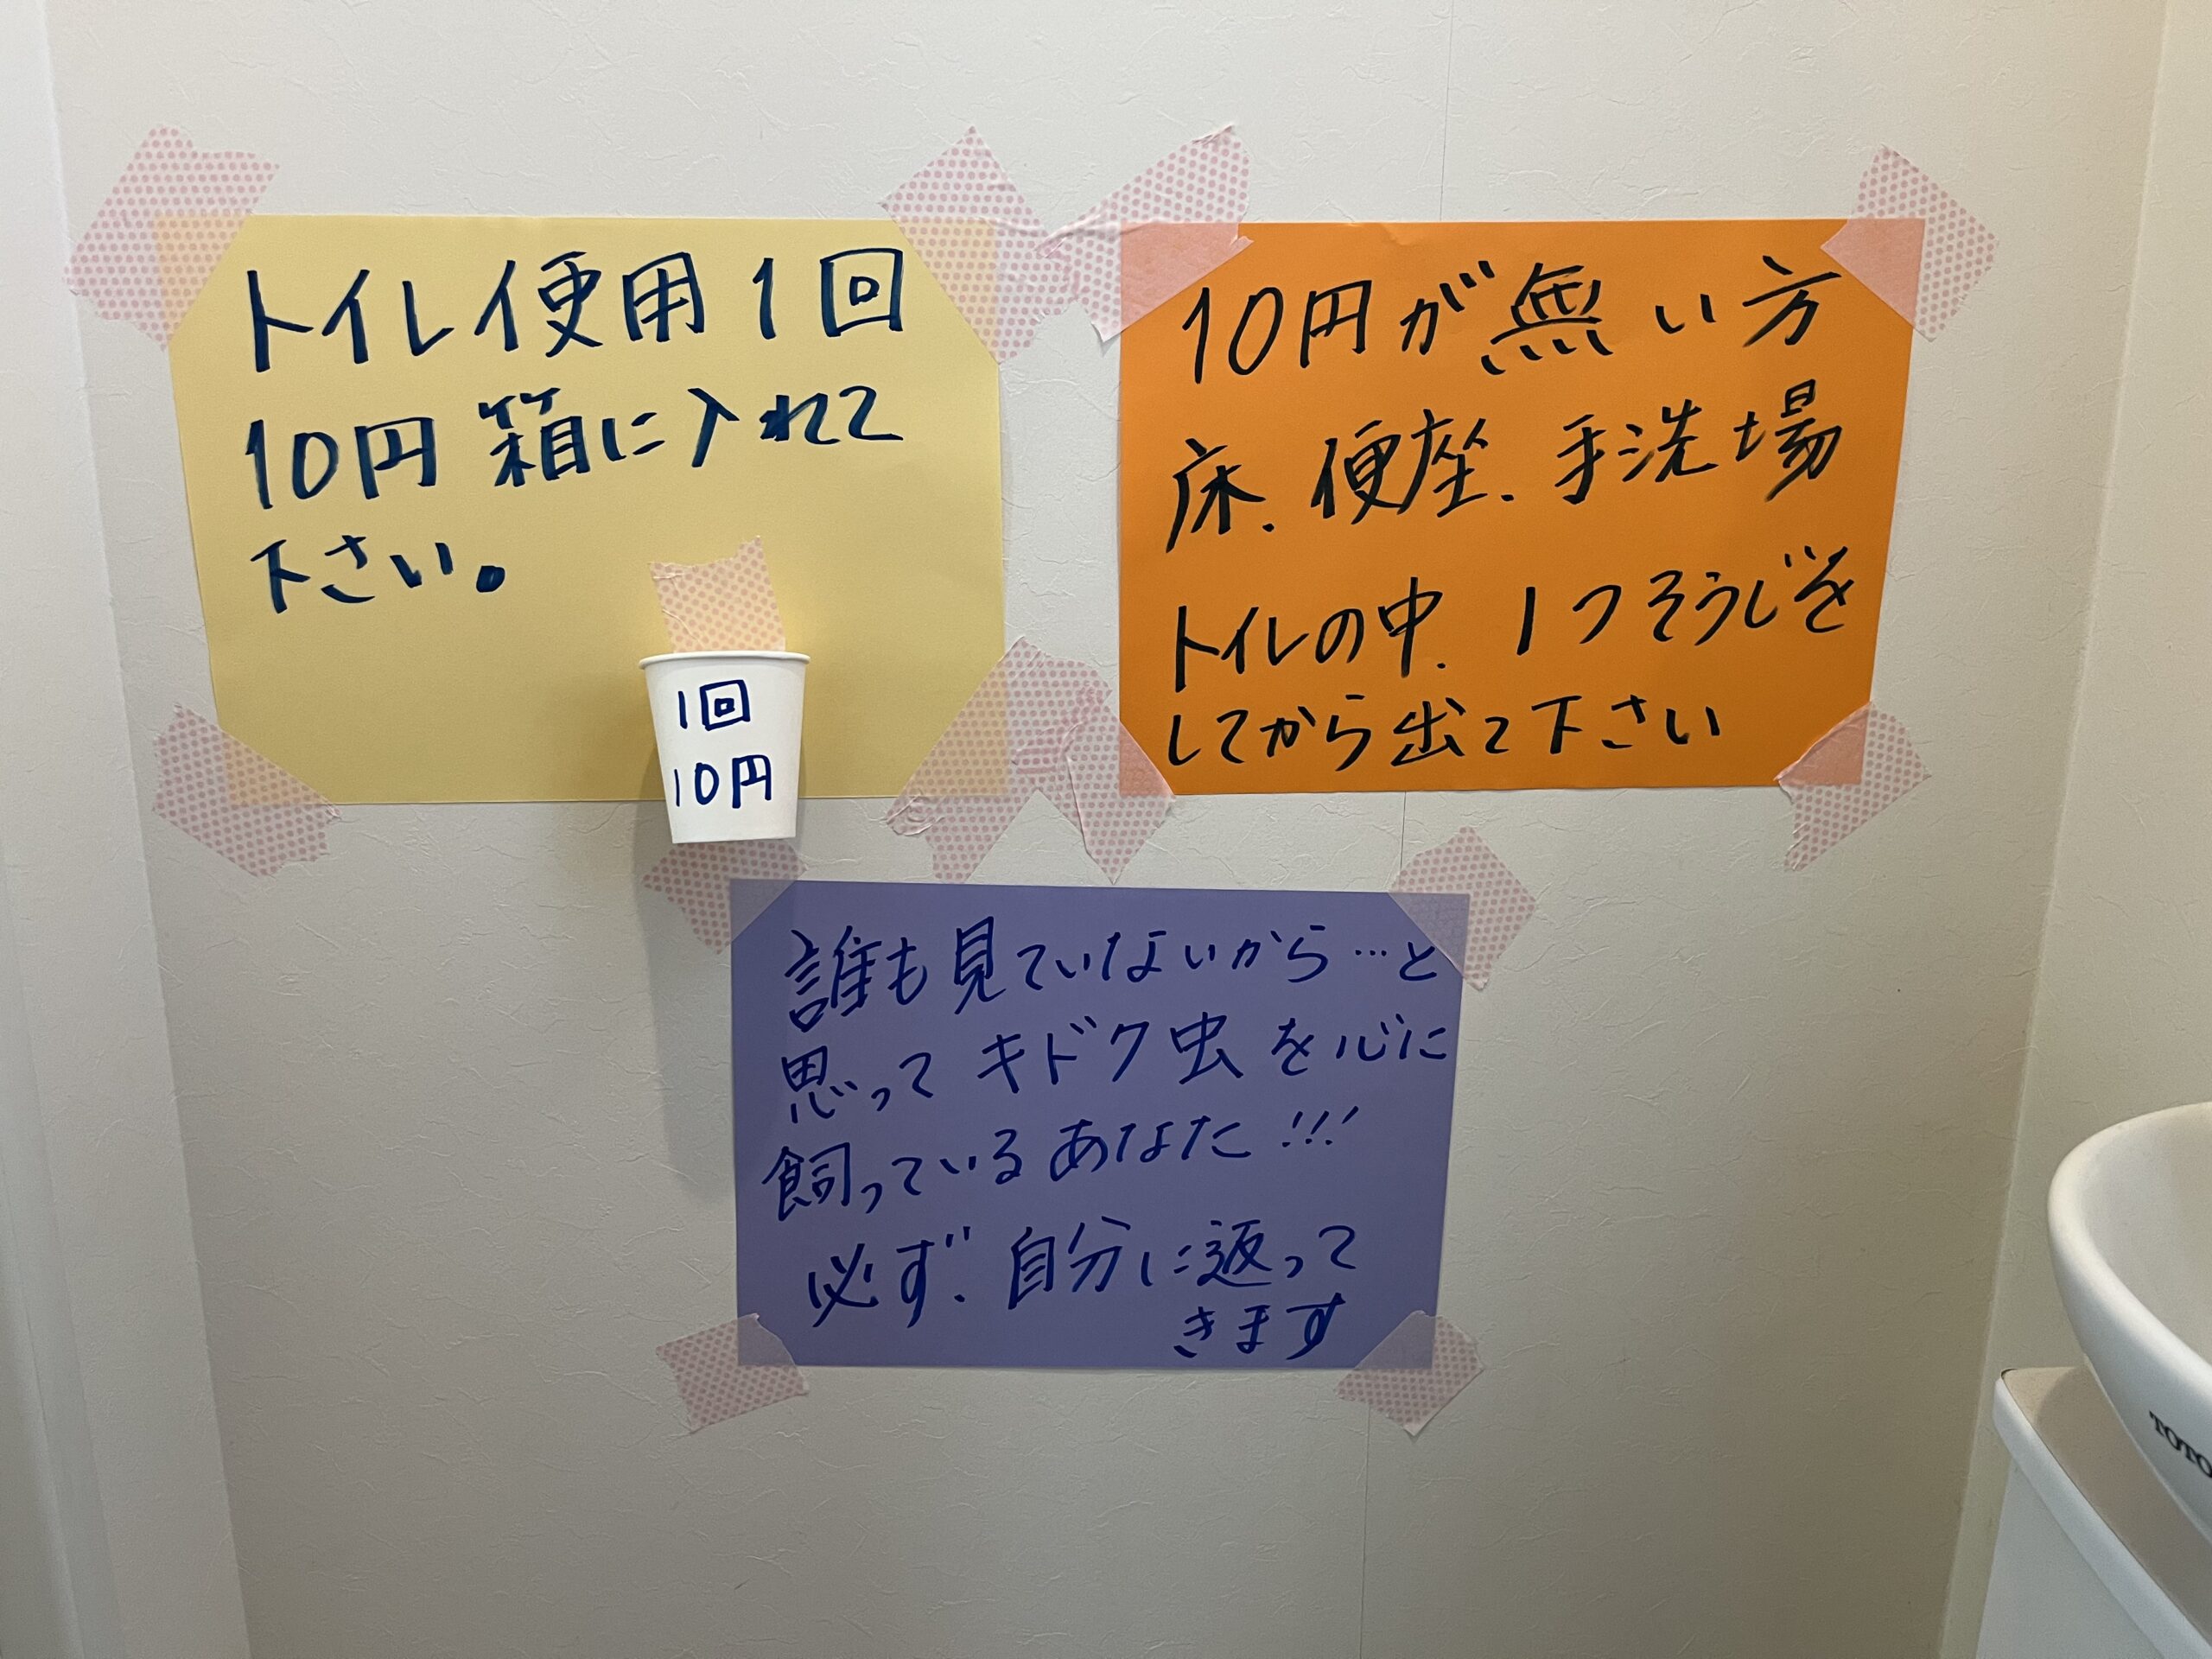 トイレ使用1回
10円箱に入れて
下さい。
1回
10円
10円が無い方
床、便座、手洗場
トイレの中、1つそうじを
してから出て下さい
誰も見ていないから…と
思ってキドク虫を心に
飼っているあなた!!!
必ず、自分に返って
きます
TOTO